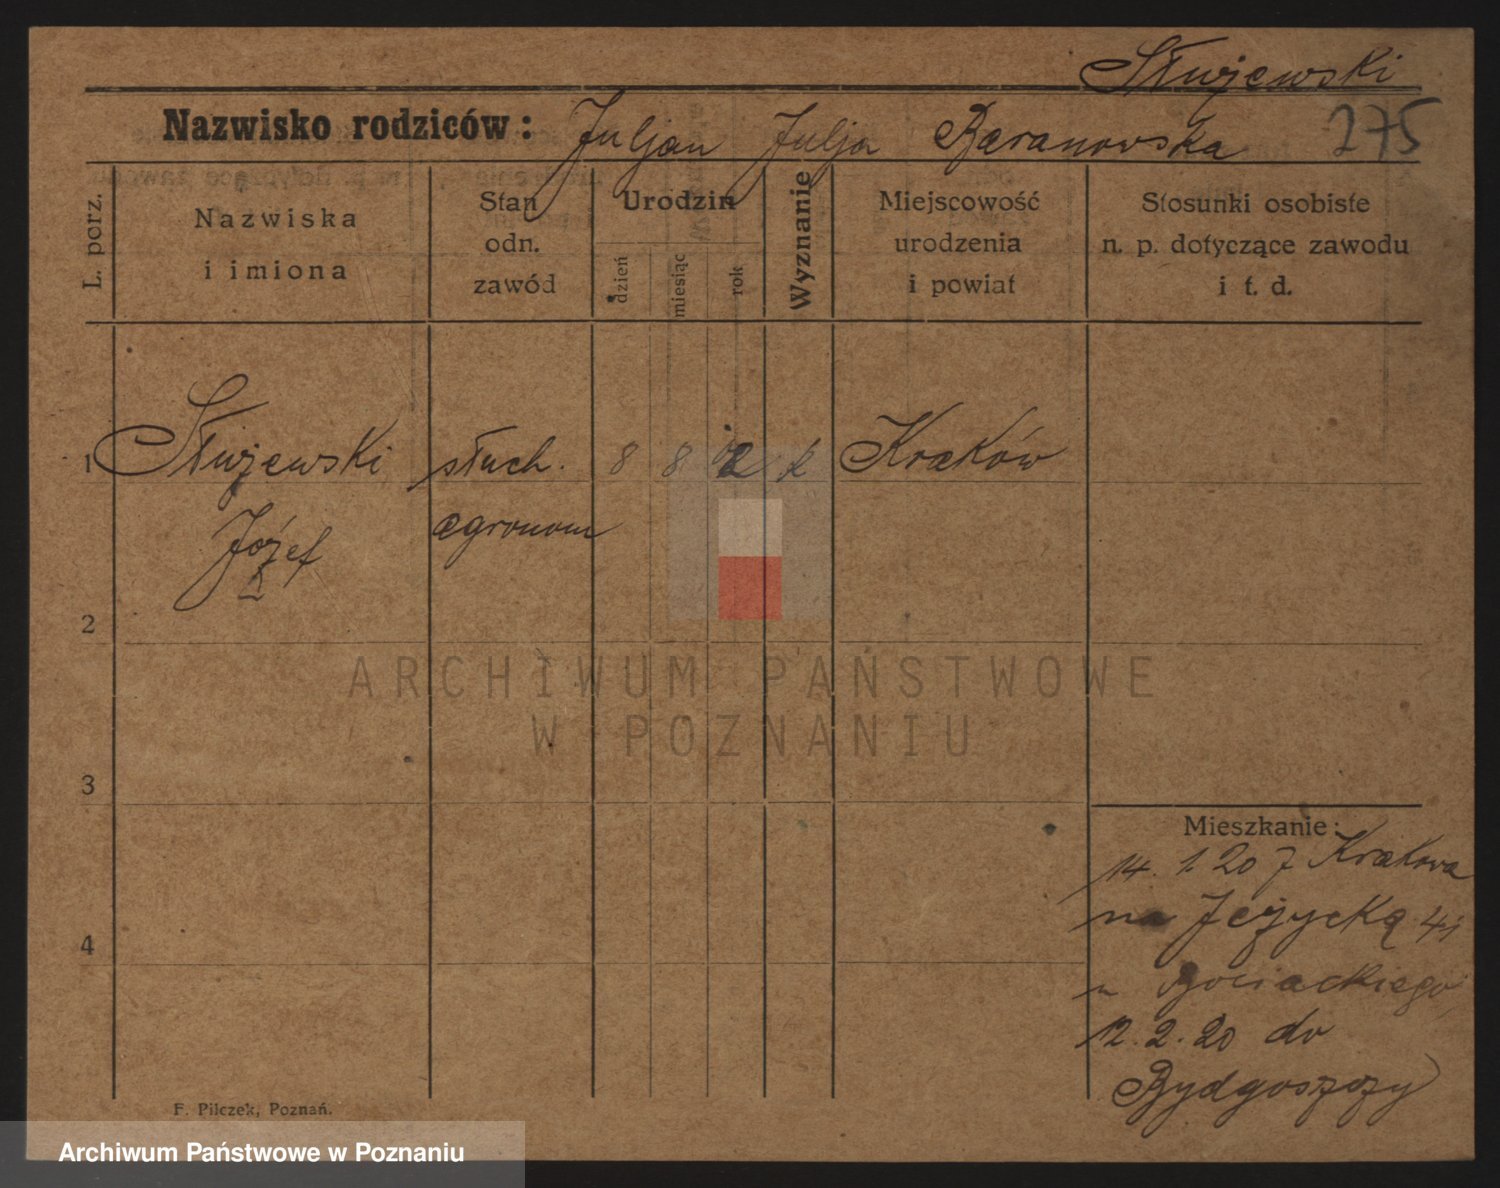 Służewski
Nazwisko rodziców: Juljan Julja Baranowska 275
L. porz.
Nazwiska
i imiona
Stan
odn.
zawód
Urodzin
dzień
miesiąc
rok
Wyznanie
Miejscowość
urodzenia
i powiat
Stosunki osobiste
n. p. dotyczące zawodu
i t. d.
1 Służewski słuch. 8 8 k Kraków
Józef agronom
2
3
4
ARCHIWUM PAŃSTWOWE
W POZNANIU
Mieszkanie:
14. 1 20 z Krakowa
na Jeżycką 41
u
12. 2. 20 do
Bydgoszczy
F. Pilczek, Poznań.
Archiwum Państwowe w Poznaniu